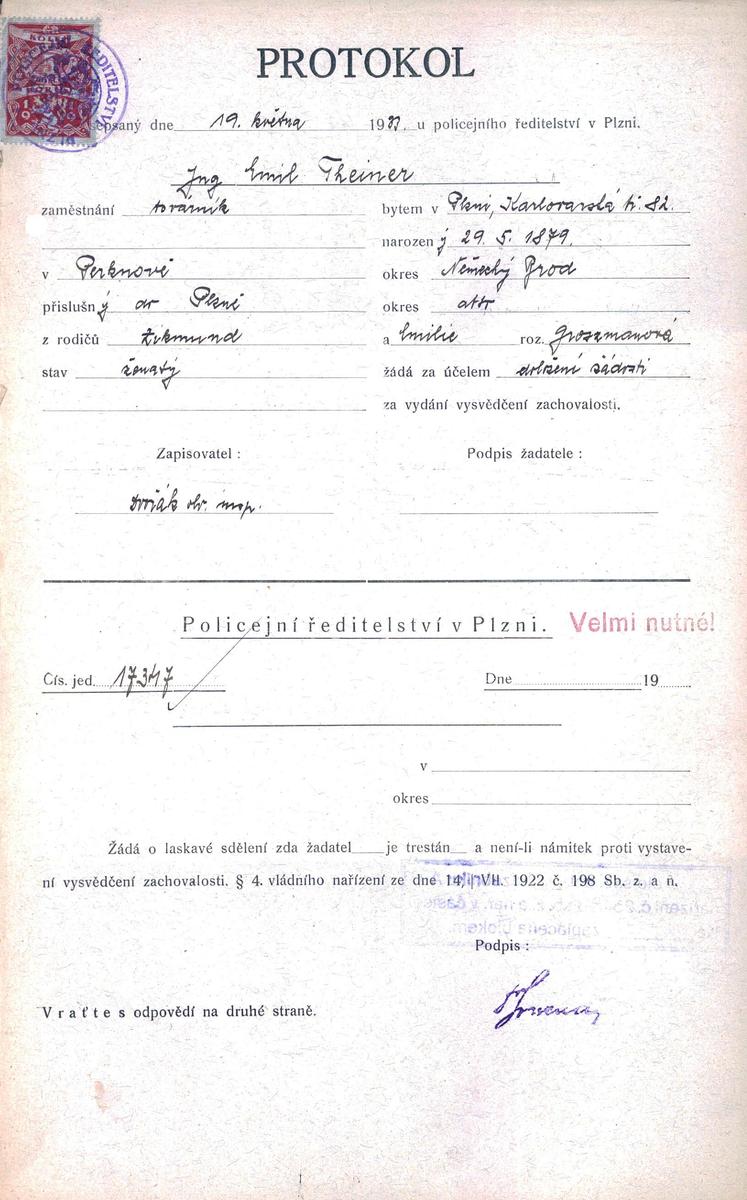 PROTOKOL
sepsaný dne 19. května 1933. u policejního ředitelství v Plzni.
Ing Emil Theiner
zaměstnání továrník bytem v Plzni, Karlovarská tř. 82.
narozený 29. 5. 1879.
v Perknově okres Německý Brod
příslušný do Plzně okres
z rodičů Zikmund a Emilie roz. Groszmanová
stav ženatý žádá za účelem doložení žádosti
za vydání vysvědčení zachovalosti.
Zapisovatel : Podpis žadatele :
Dvořák
Policejní ředitelství v Plzni. Velmi nutné!
Čís. jed. 17347 Dne 19
v
okres
Žádá o laskavé sdělení zda žadatel je trestán a není-li námitek proti vystave-
ní vysvědčení zachovalosti. § 4. vládního nařízení ze dne 14. VII. 1922 č. 198 Sb. z. a n.
Podpis :
Vraťte s odpovědí na druhé straně.